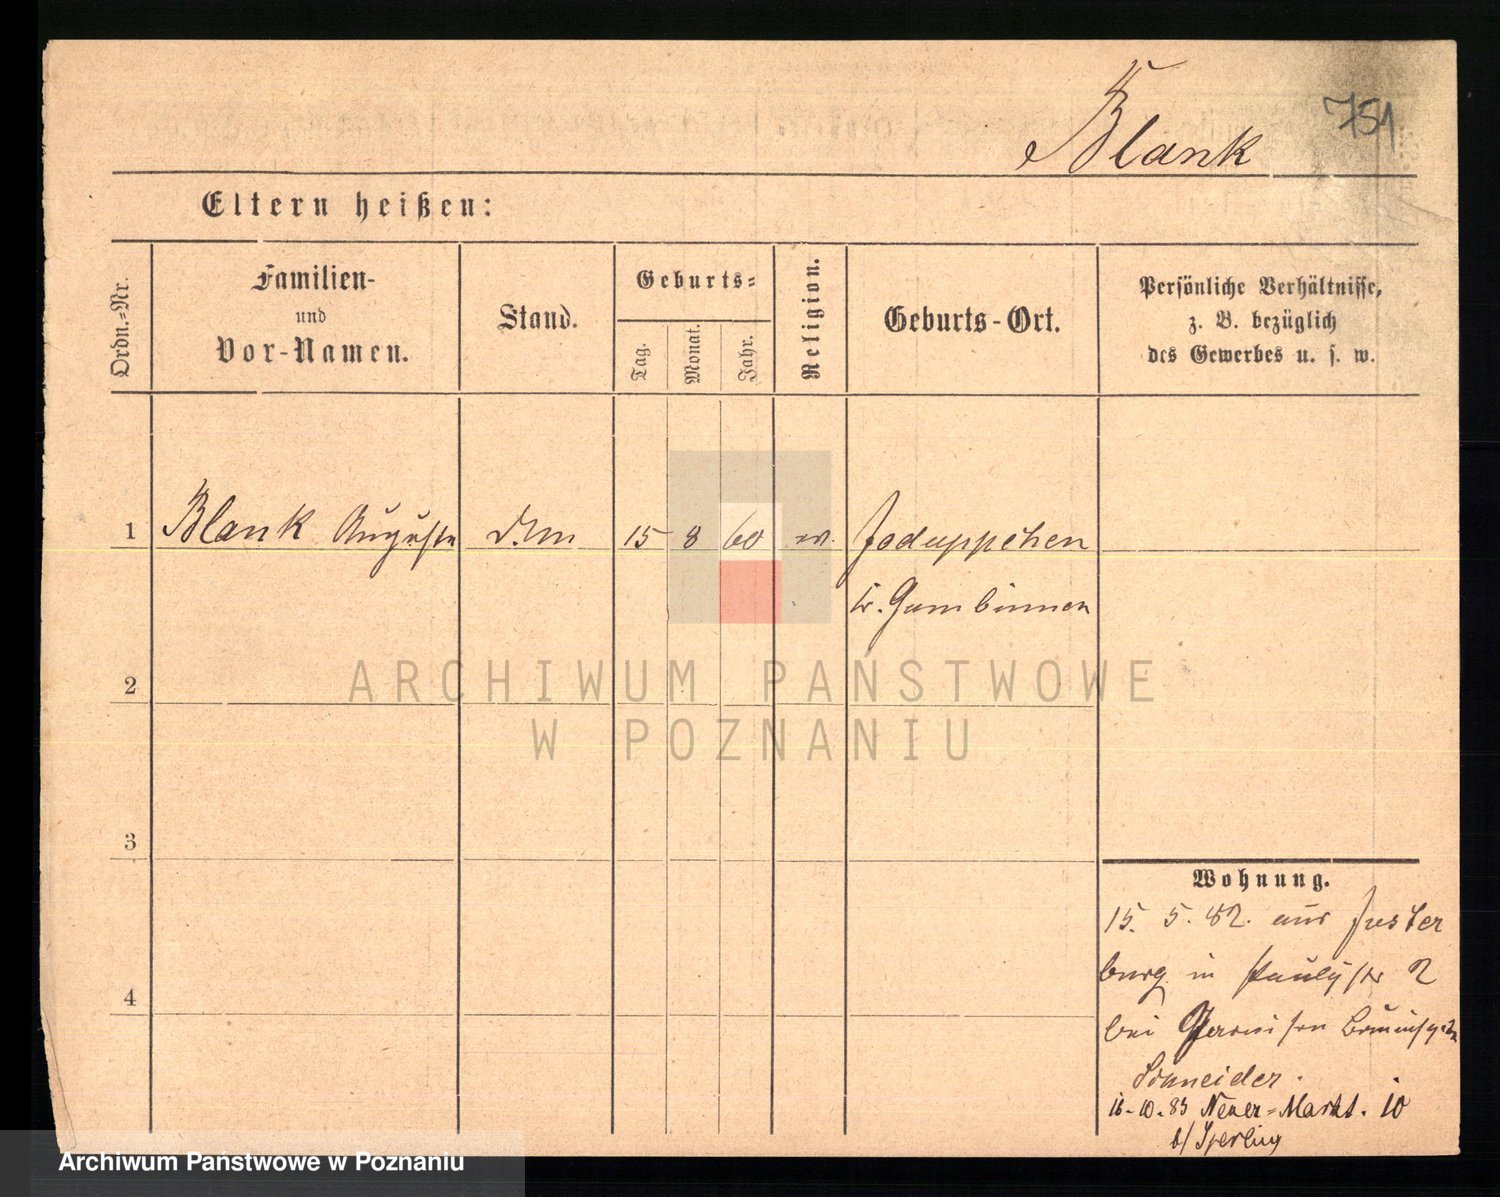 751
Blank
Eltern heißen:
Ordn.-Nr.
Familien-
und
Vor-Namen.
Stand.
Geburts-
Tag.
Monat.
Jahr.
Religion.
Geburts-Ort.
Persönliche Verhältnisse,
z. B. bezüglich
des Gewerbes u. s. w.
1 Blank Auguste 15 8 60 ev. Joduppchen
Gumbinnen
ARCHIWUM PAŃSTWOWE
W POZNANIU
2
3
4
Wohnung.
15. 5. 82. aus Inster
burg in Paulystr 2
bei Garnison
Schneider.
10. 83 Neuer-Markt. 10
b/ Sperling
Archiwum Państwowe w Poznaniu